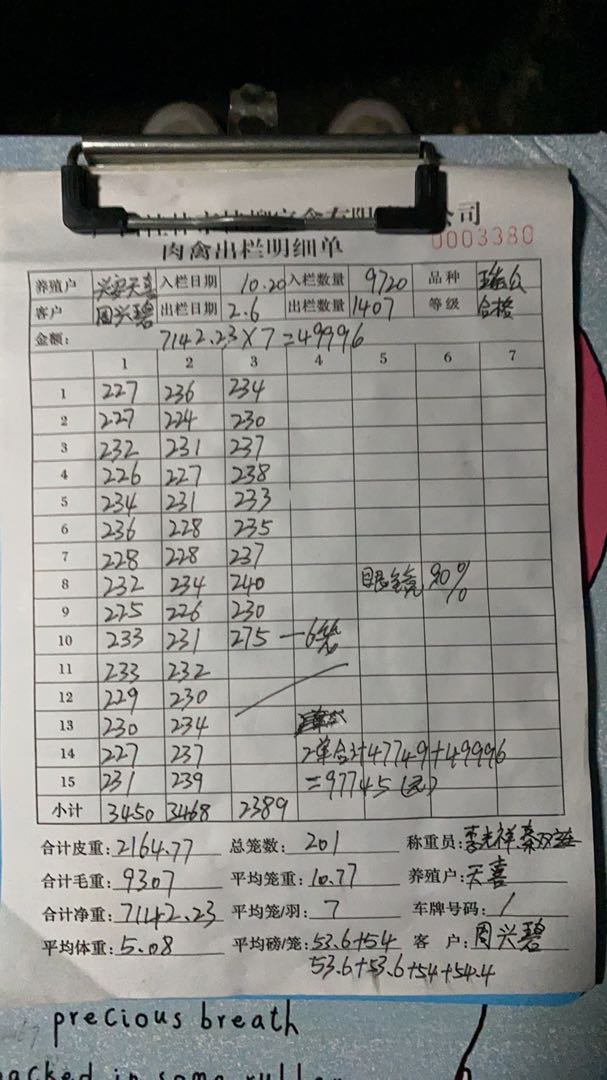 司
肉禽出栏明细单
0003380
养殖户 兴安天喜 入栏日期 10.20 入栏数量 9720 品种
客户 周兴碧 出栏日期 2.6 出栏数量 1407 等级 合格
金额: 7142.23×7=49996
1 2 3 4 5 6 7
1 227 236 234
2 227 224 230
3 232 231 237
4 226 227 238
5 234 231 233
6 236 228 235
7 228 228 237
8 232 234 240 眼全亮 90%
9 225 226 230
10 233 231 275 —6笼
11 233 232
12 229 230
13 230 234
14 227 237 2单合计47749+49996
15 231 239 =97745(元)
小计 3450 3468 2389
合计皮重:2164.77 总笼数: 201 称重员:李光祥
合计毛重:9307 平均笼重:10.77 养殖户:天喜
合计净重:7142.23 平均笼/羽: 7 车牌号码: /
平均体重:5.08 平均磅/笼:53.6+54 客 户:周兴碧
53.6+53.6+54+54.4
precious breath